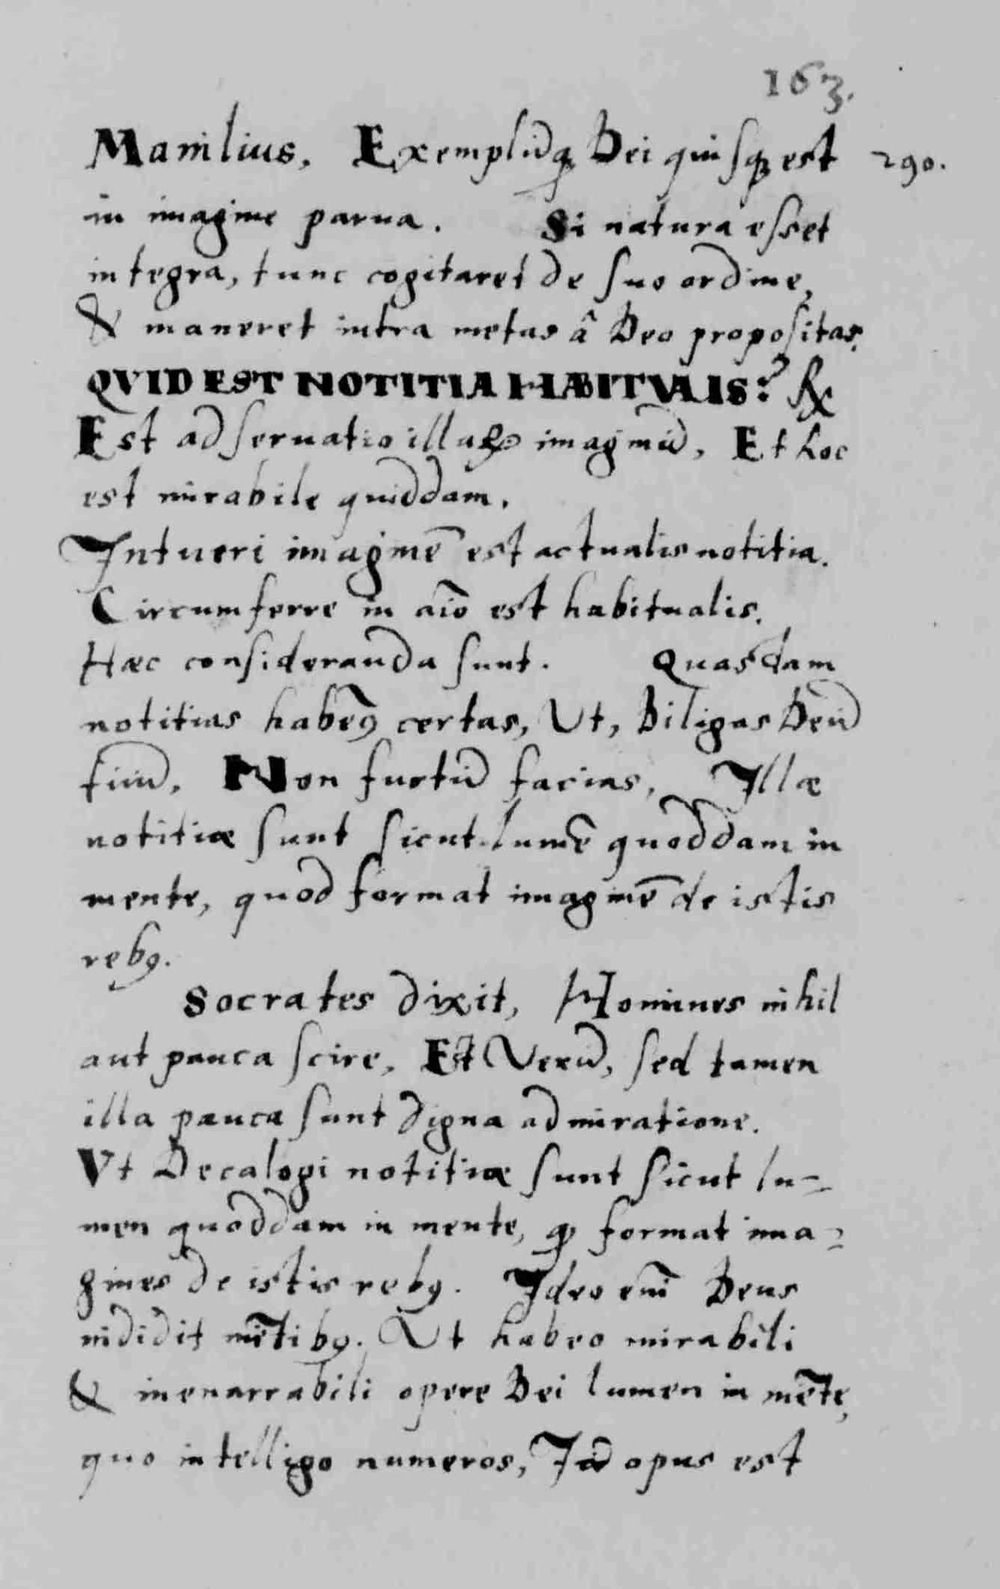 163.
Manilius, Exemplũq́ꝫ Dei quisqꝫ est 290.
in imagine parua. Si natura esset
integra, tunc cogitaret de suo ordine,
& maneret intra metas â Deo propositas.
QVID EST NOTITIA HABITVALIS? ℟
Est adseruatio illaꝝ imaginũ, Et hoc
est mirabile quiddam.
Intueri imaginẽ est actualis notitia.
Circumferre in aĩo est habitualis.
Hæc consideranda sunt. Quasdam
notitias habemꝰ certas, Vt, Diligas Deũ
tuũ, Non furtũ facias, Illæ
notitiæ sunt sicut lumẽ quoddam in
mente, quod format imaginẽ de istis
rebꝰ.
Socrates dixit, Homines nihil
aut pauca scire, Est Verũ, sed tamen
illa pauca sunt digna admiratione.
Vt Decalogi notitiæ sunt sicut lu-
men quoddam in mente, qď format ima-
gines de istis rebꝰ. Ideo eni͂ Deus
indidit mẽtibꝰ. Vt habeo mirabili
& inenarrabili opere Dei lumen in mẽte,
quo intelligo numeros, Id opus est